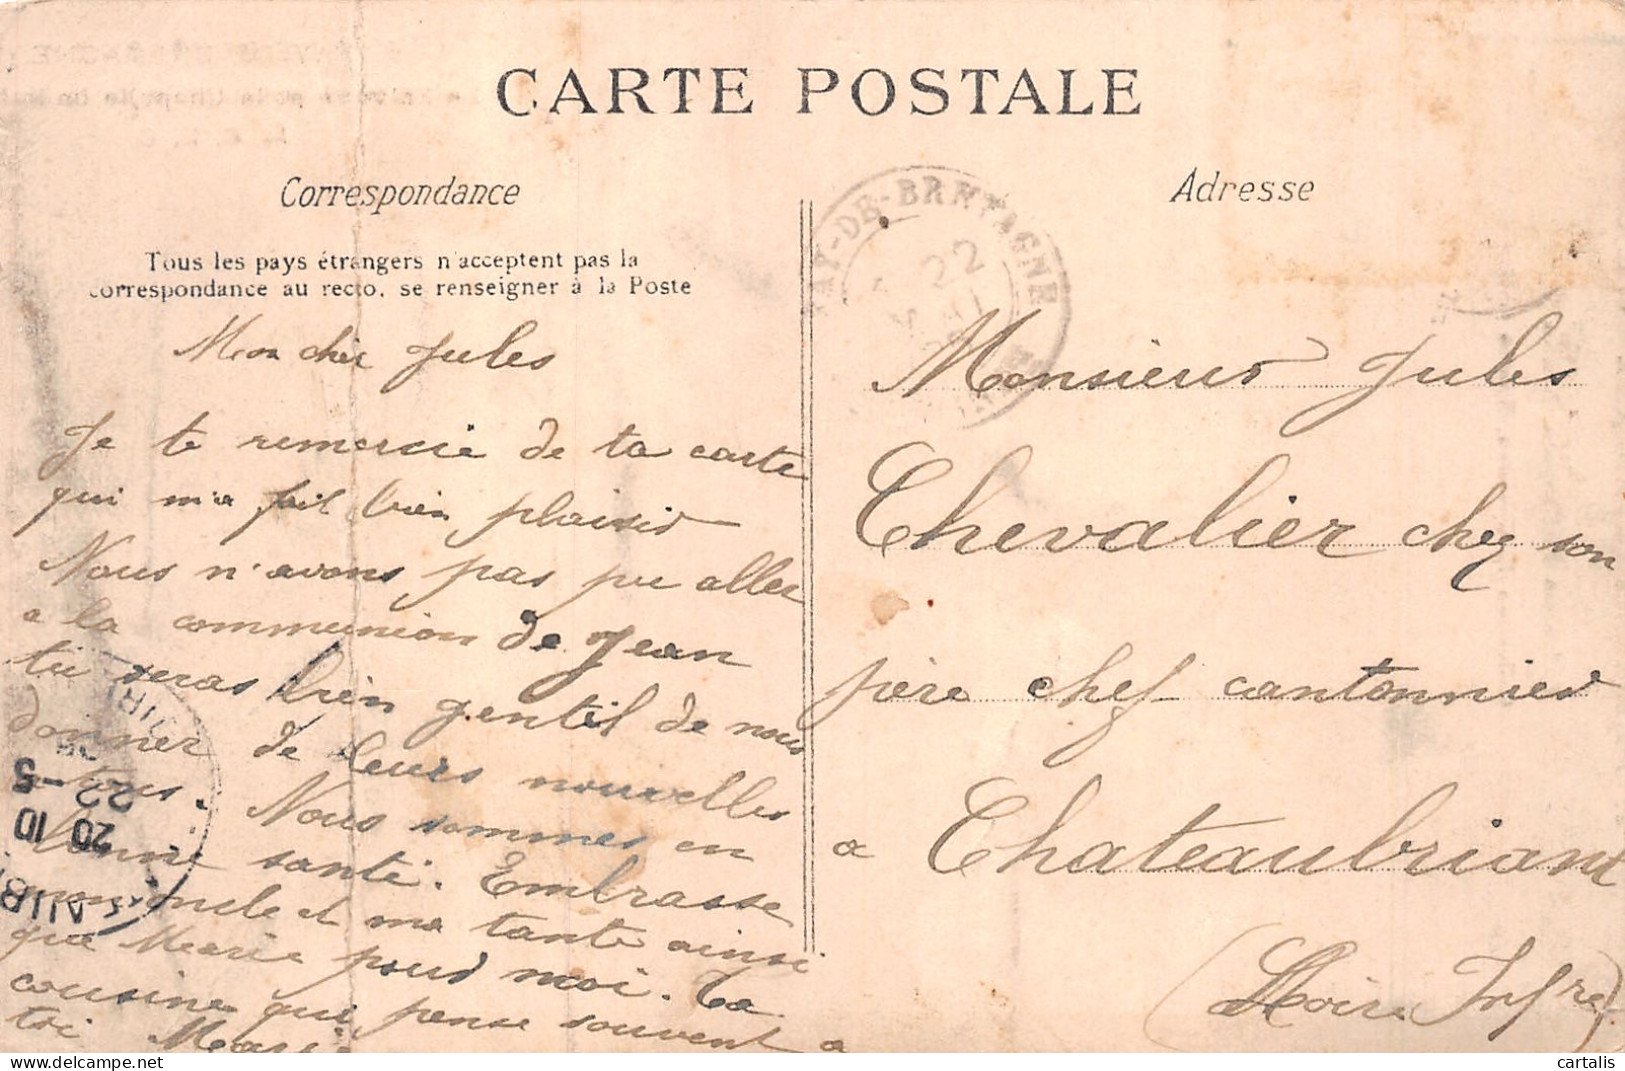 CARTE POSTALE
Correspondance
Tous les pays étrangers n'acceptent pas la
correspondance au recto, se renseigner à la Poste
Mon cher Jules
Je te remercie de ta carte
qui m'a fait bien plaisir
Nous n'avons pas pu aller
a la communion de Jean
tu seras bien gentil de nous
donner de leurs nouvelles
a tous. Nous sommes en
bonne santé. Embrasse
mon oncle et ma tante ainsi
que Marie pour moi. Ta
cousine qui pense souvent a
toi
Adresse
AY-DE-BRETAGNE
22
Monsieur Jules
Chevalier chez son
père chef cantonnier
a Chateaubriant
(Loire Infre)
22-5
20 10
cartalis